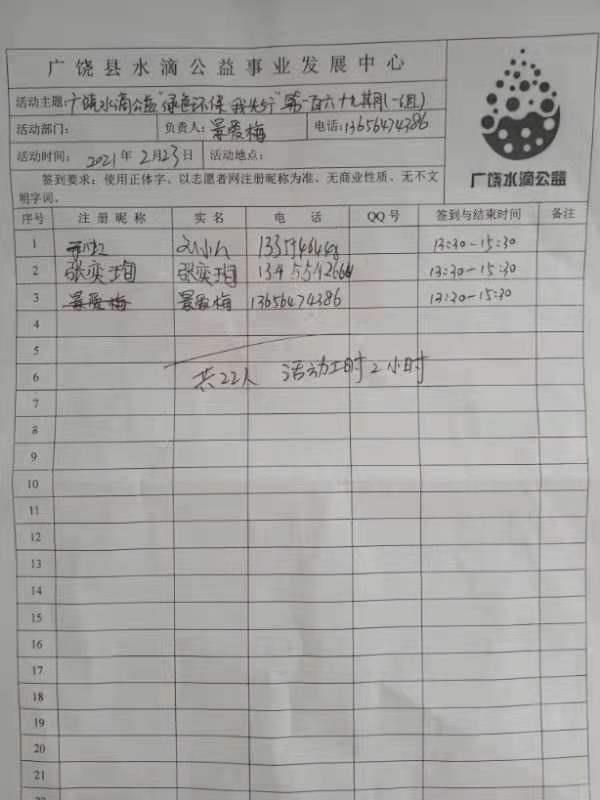 广饶县水滴公益事业发展中心
活动主题:广饶水滴公益"绿色环保 我先行"第一百六十九期(一组)
活动部门: 负责人:景爱梅 电话:13656474386
活动时间: 2021年2月23日 活动地点:
签到要求:使用正体字、以志愿者网注册昵称为准、无商业性质、无不文
明字词。
广饶水滴公益
序号 注册昵称 实名 电话 QQ号 签到与结束时间 备注
1 13:30-15:30
2 张奕珣 张奕珣 13:30-15:30
3 景爱梅 景爱梅 13656474386 13:30-15:30
4
5
6 共22人 活动工时2小时
7
8
9
10
11
12
13
14
15
16
17
18
19
20
21